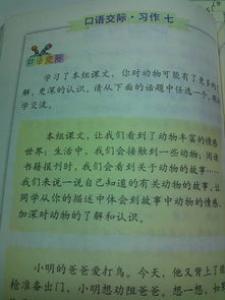 口语交际·习作七
口语交际
学习了本组课文，你对动物可能有了更多的了
解，更深的认识。请从下面的话题中任选一个，
学交流。
本组课文，让我们看到了动物丰富的情感
世界；生活中，我们会接触到一些动物；阅读
书籍报刊时，我们会看到关于动物的故事……
我们来说一说自己知道的有关动物的故事，让
同学从你的描述中体会到故事中动物的情感，
加深对动物的了解和认识。
小明的爸爸爱打鸟。今天，他又背上了猎
枪准备出门，小明想劝阻爸爸。想一想，如